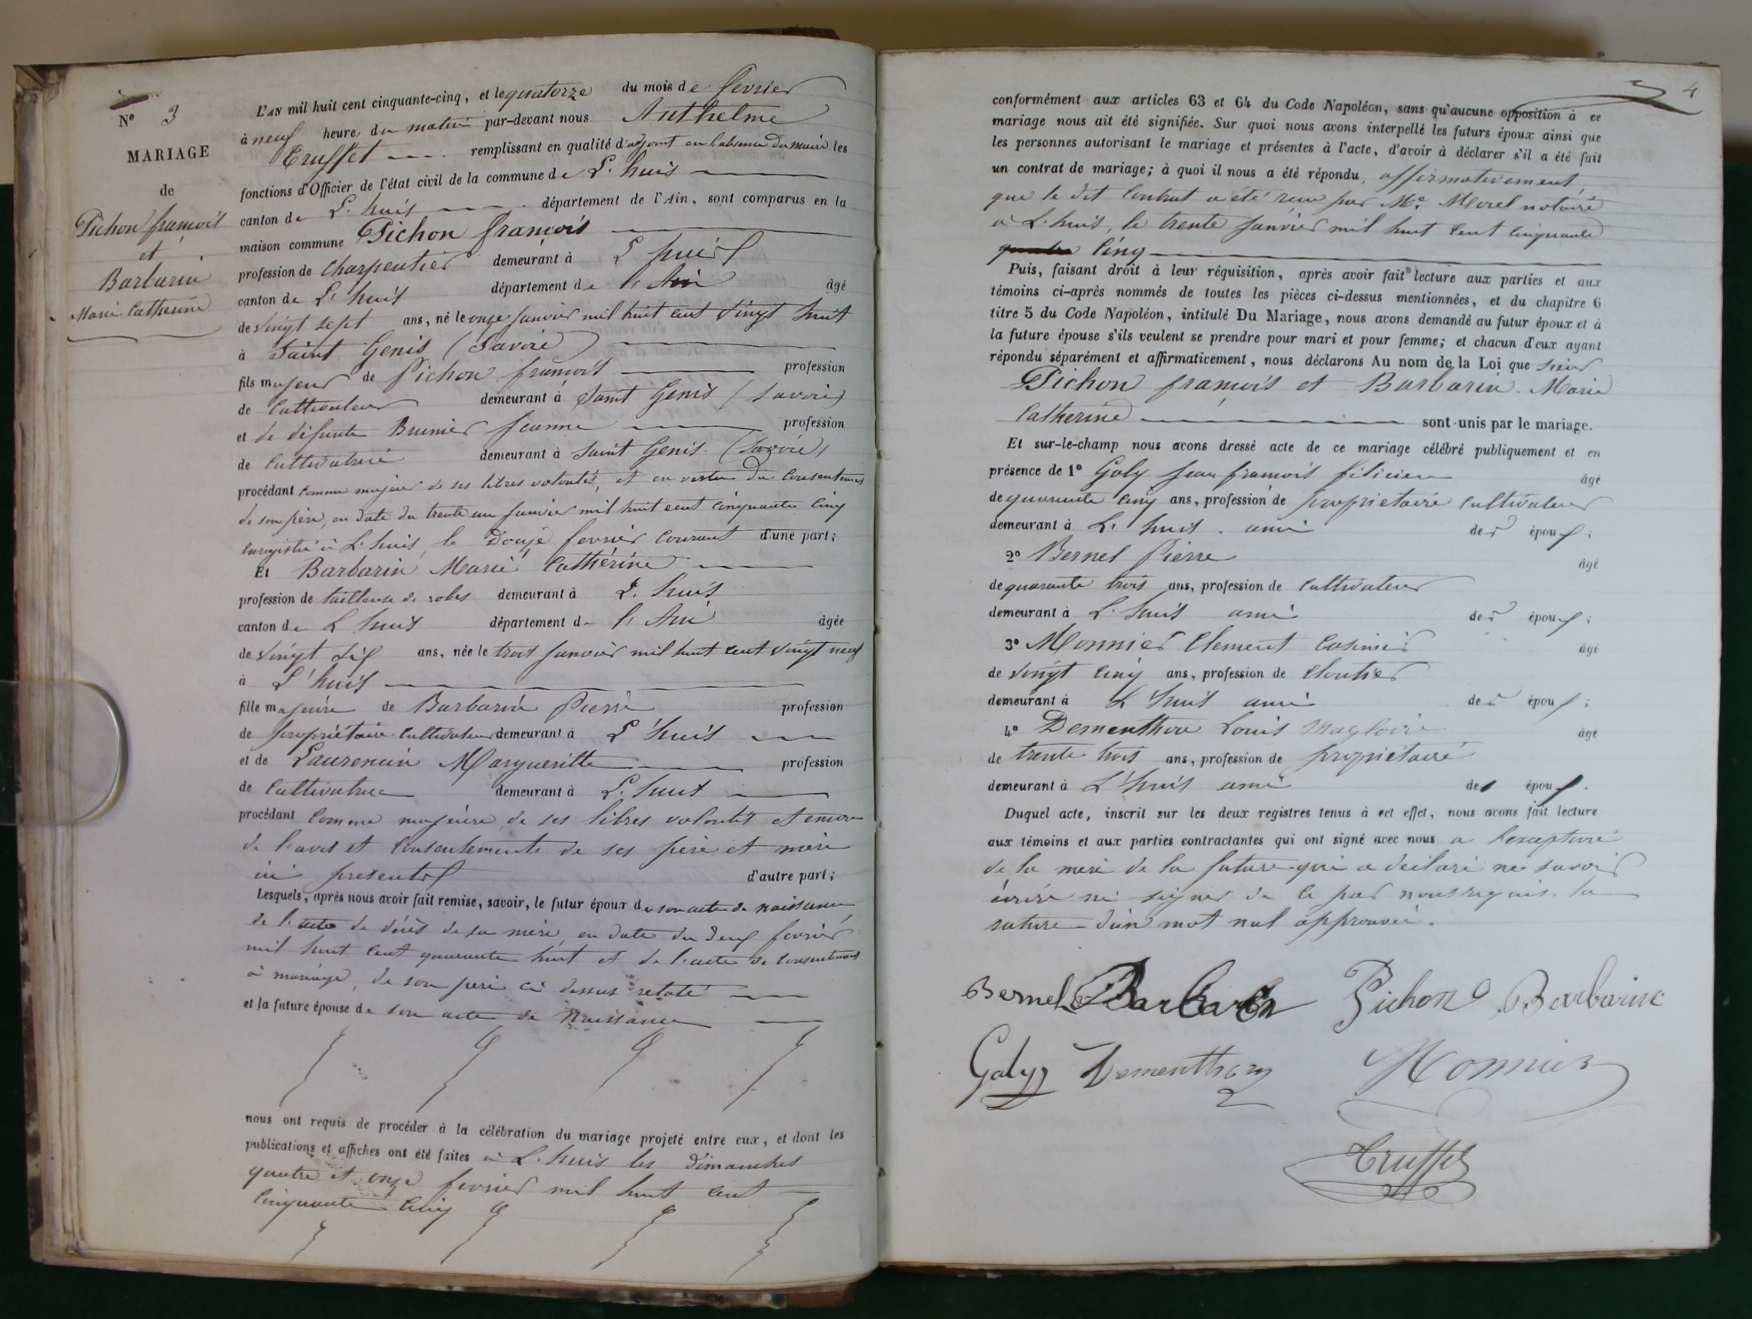 N° 3
MARIAGE
de
Pichon françois
et
Barbarin
Marie Catherine
L'AN mil huit cent cinquante-cinq, et le quatorze du mois de fevrier
à neuf heure du matin par-devant nous Anthelme
Truffet remplissant en qualité d'adjoint en l'absence du maire les
fonctions d'Officier de l'état civil de la commune de L'huis
canton de L'huis département de l'Ain, sont comparus en la
maison commune Pichon françois
profession de charpentier demeurant à L'huis
canton de L'huis département de l'Ain âgé
de vingt sept ans, né le onze janvier mil huit cent vingt huit
à Saint Genis (Savoie)
fils majeur de Pichon françois profession
de Cultivateur demeurant à Saint Genis (Savoie)
et de défunte Brunier Jeanne profession
de Cultivatrice demeurant à Saint Genis (Savoie)
procédant comme majeur de ses libres volontés, et en vertu du Consentement
de son père, en date du trente un janvier mil huit cent cinquante cinq
enregistré à L'huis, le Douze fevrier Courant d'une part;
Et Barbarin Marie Catherine
profession de tailleuse de robes demeurant à L'huis
canton de L'huis département de l'Ain âgée
de vingt six ans, née le trois janvier mil huit cent vingt neuf
à L'huis
fille majeure de Barbarin Pierre profession
de propriétaire Cultivateur demeurant à L'huis
et de Laurencin Margueritte profession
de Cultivatrice demeurant à L'huis
procédant Comme majeure de ses libres volontés et encore
de l'avis et Consentement de ses père et mère
ici presents d'autre part;
Lesquels, après nous avoir fait remise, savoir, le futur époux de son acte de naissance
de l'acte de décès de sa mère, en date du deux fevrier
mil huit cent quarante huit et de l'acte de Consentement
à mariage, de son père ci dessus relaté
et la future épouse de son acte de Naissance
nous ont requis de procéder à la célébration du mariage projeté entre eux, et dont les
publications et affiches ont été faites à L'huis les dimanches
quatre et onze fevrier mil huit cent
Cinquante Cinq
4
conformément aux articles 63 et 64 du Code Napoléon, sans qu'aucune opposition à ce
mariage nous ait été signifiée. Sur quoi nous avons interpellé les futurs époux ainsi que
les personnes autorisant le mariage et présentes à l'acte, d'avoir à déclarer s'il a été fait
un contrat de mariage; à quoi il nous a été répondu, affirmativement,
que le dit Contrat a été recu par Me. Morel notaire
à L'huis, le trente janvier mil huit cent Cinquante
quatre Cinq
Puis, faisant droit à leur réquisition, après avoir fait lecture aux parties et aux
témoins ci-après nommés de toutes les pièces ci-dessus mentionnées, et du chapitre 6
titre 5 du Code Napoléon, intitulé Du Mariage, nous avons demandé au futur époux et à
la future épouse s'ils veulent se prendre pour mari et pour femme; et chacun d'eux ayant
répondu séparément et affirmativement, nous déclarons Au nom de la Loi que sieur
Pichon françois et Barbarin Marie
Catherine sont unis par le mariage.
Et sur-le-champ nous avons dressé acte de ce mariage célébré publiquement et en
présence de 1° Goly Jean françois félicien âgé
de quarante cinq ans, profession de propriétaire Cultivateur
demeurant à L'huis ami des époux;
2° Bernel Pierre âgé
de quarante trois ans, profession de Cultivateur
demeurant à L'huis ami des époux;
3° Monnier Clement Casimir âgé
de vingt Cinq ans, profession de Cloutier
demeurant à L'huis ami des époux;
4° Dementhon Louis Magloire âgé
de trente trois ans, profession de propriétaire
demeurant à L'huis ami des époux.
Duquel acte, inscrit sur les deux registres tenus à cet effet, nous avons fait lecture
aux témoins et aux parties contractantes qui ont signé avec nous a l'exception
de la mère de la future qui a declaré ne savoir
écrire ni signer de ce par nous requis. la
rature d'un mot nul approuvée.
Bernel Barbarin Pichon Barbarin
Goly Dementhon Monnier
Truffet